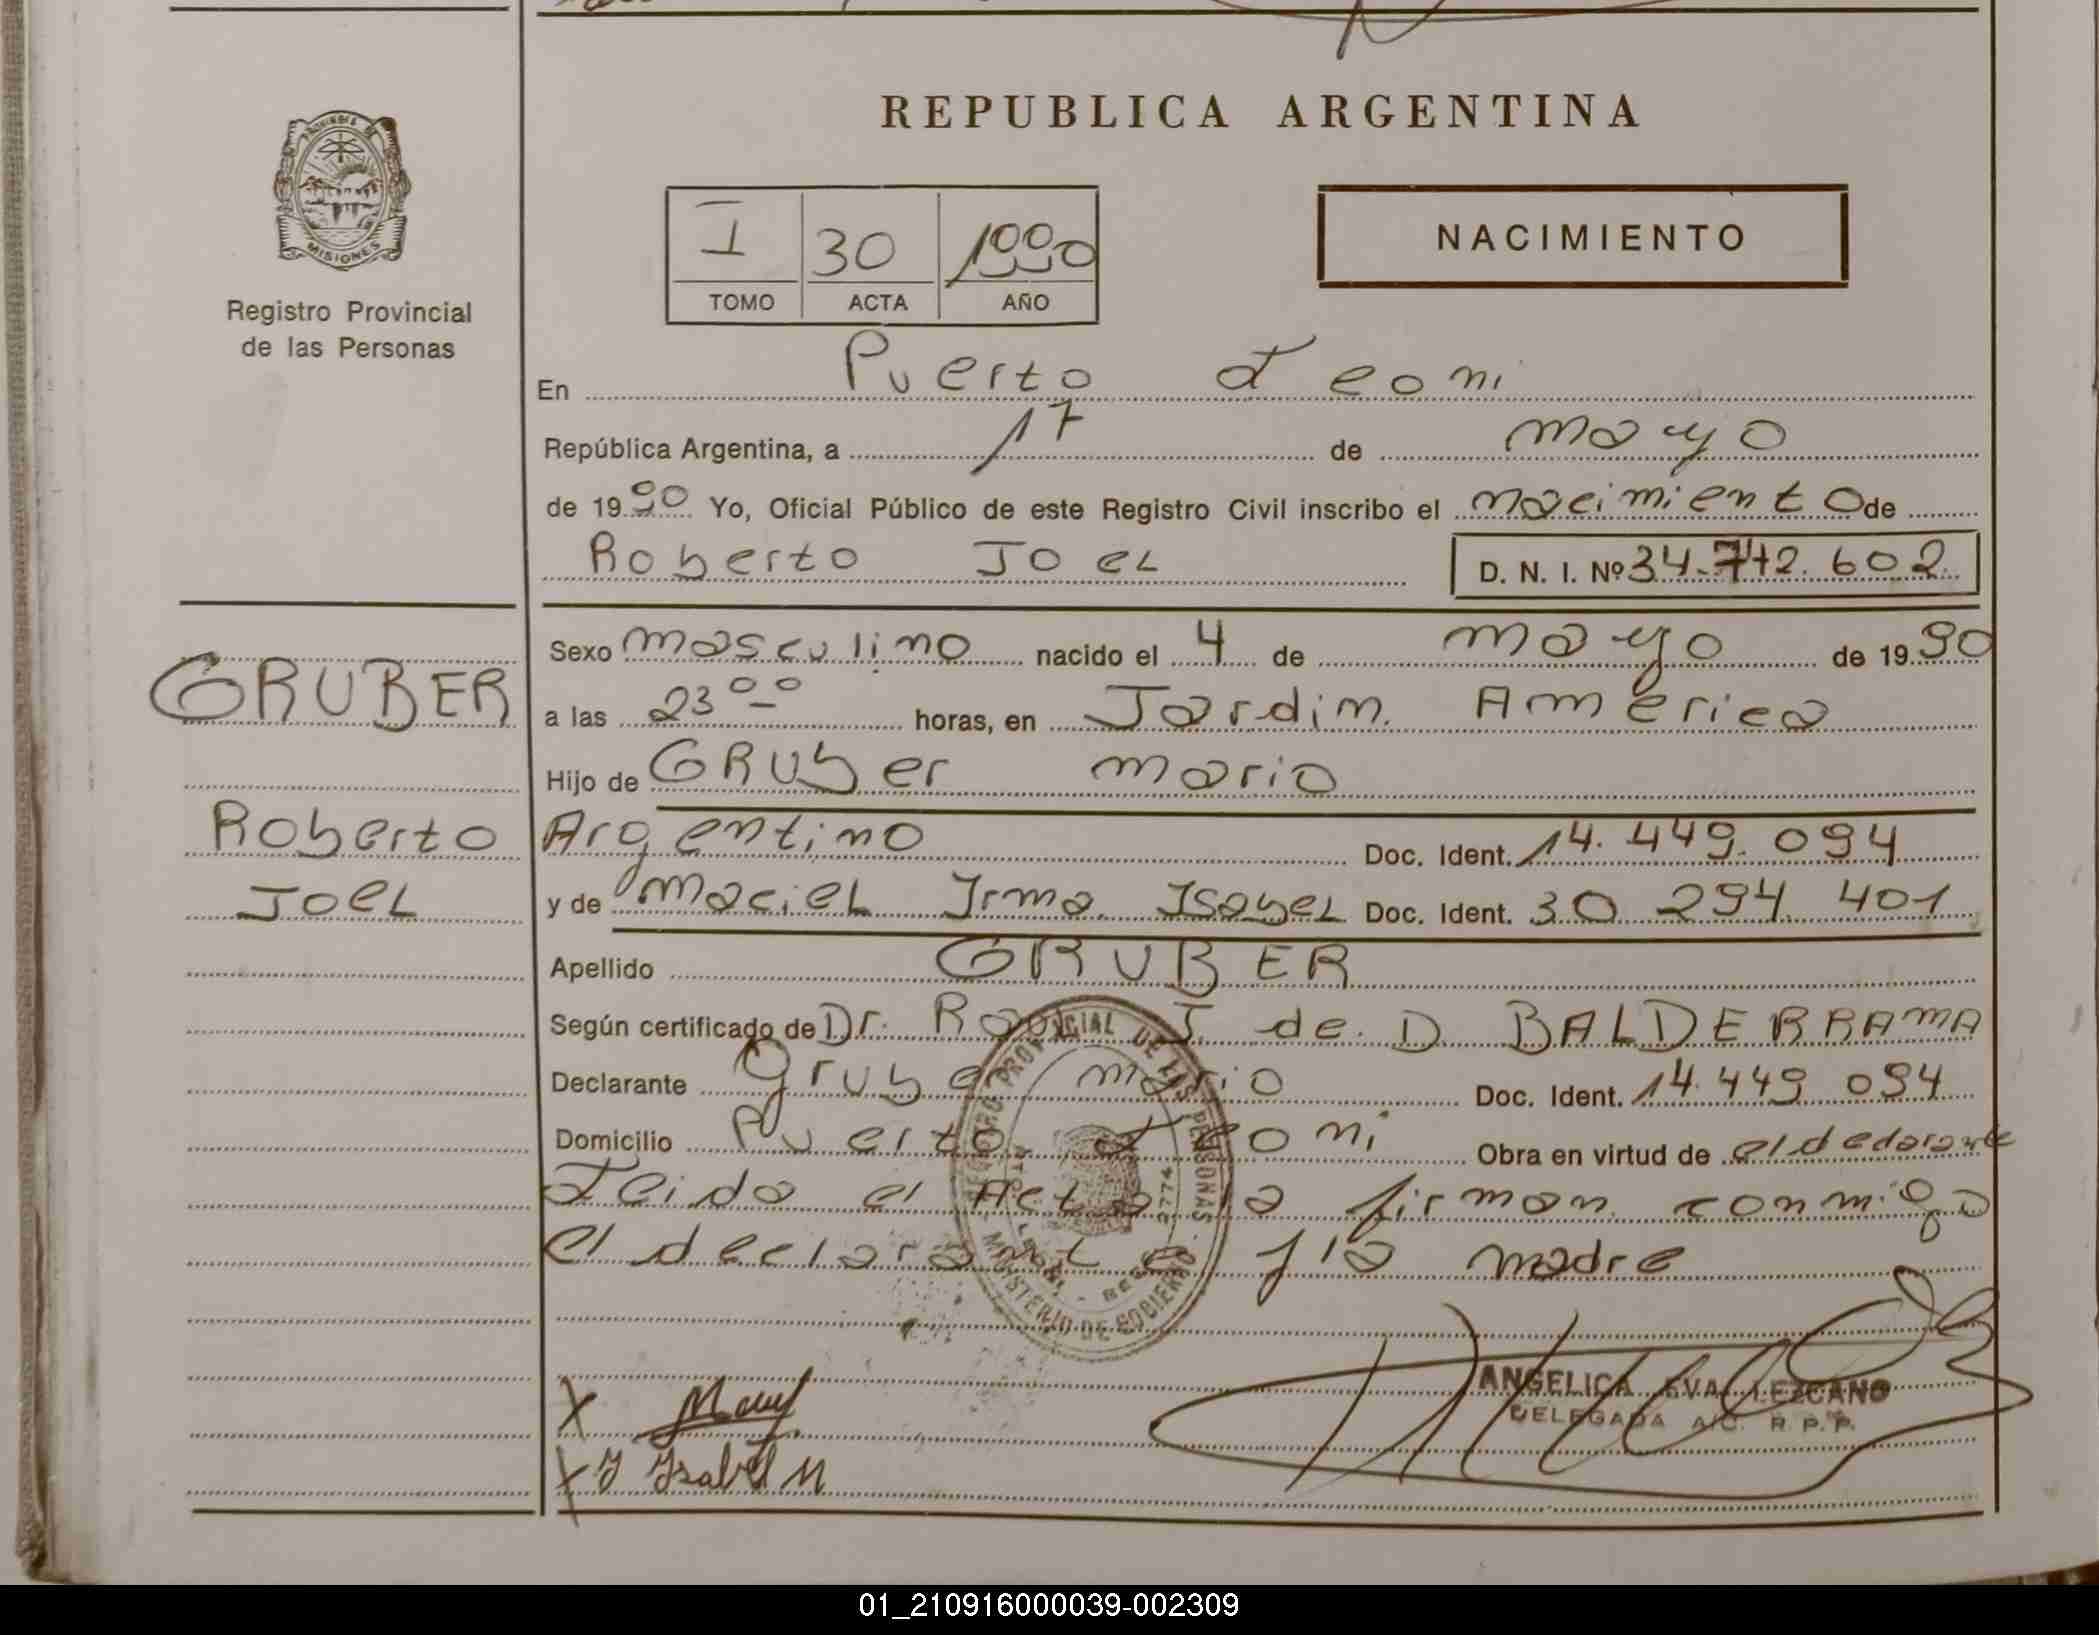 REPUBLICA ARGENTINA
PROVINCIA DE
MISIONES
Registro Provincial
de las Personas
I 30 1990
TOMO ACTA AÑO
NACIMIENTO
En Puerto Leoni
República Argentina, a 17 de mayo
de 1990 Yo, Oficial Público de este Registro Civil inscribo el nacimiento de
Roberto JOEL D. N. I. Nº 34.742.602
Sexo masculino nacido el 4 de mayo de 1990
GRUBER
a las 23 00 horas, en Jardin America
Hijo de GRUber mario
Roberto
Argentino Doc. Ident. 14.449.094
JOEL
y de macieL Irma IsabeL Doc. Ident. 30 294 401
Apellido GRUBER
Según certificado de Dr. Raul J. de D BALDERRAMA
Declarante Gruber mario Doc. Ident. 14.449 094
Domicilio Puerto Leoni Obra en virtud de el declarante
Leida el Acta la firman conmigo
el declarante y la madre
REGISTRO PROVINCIAL DE LAS PERSONAS
MINISTERIO DE GOBIERNO
2774
X
X I Isabel M
ANGELICA EVA LEZCANO
DELEGADA A/C. R.P.P.
01_210916000039-002309